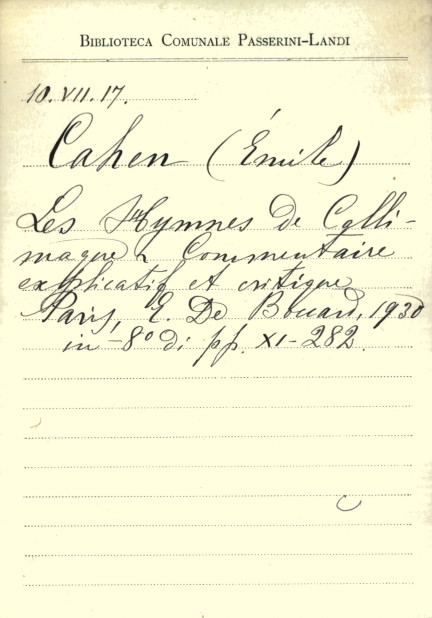 BIBLIOTECA COMUNALE PASSERINI-LANDI
10.VII.17.
Cahen (Émile)
Les Hymnes de Calli-
maque Commentaire
explicatif et critique
Paris, E. De Boccard, 1930
in-8° di pp. XI-282